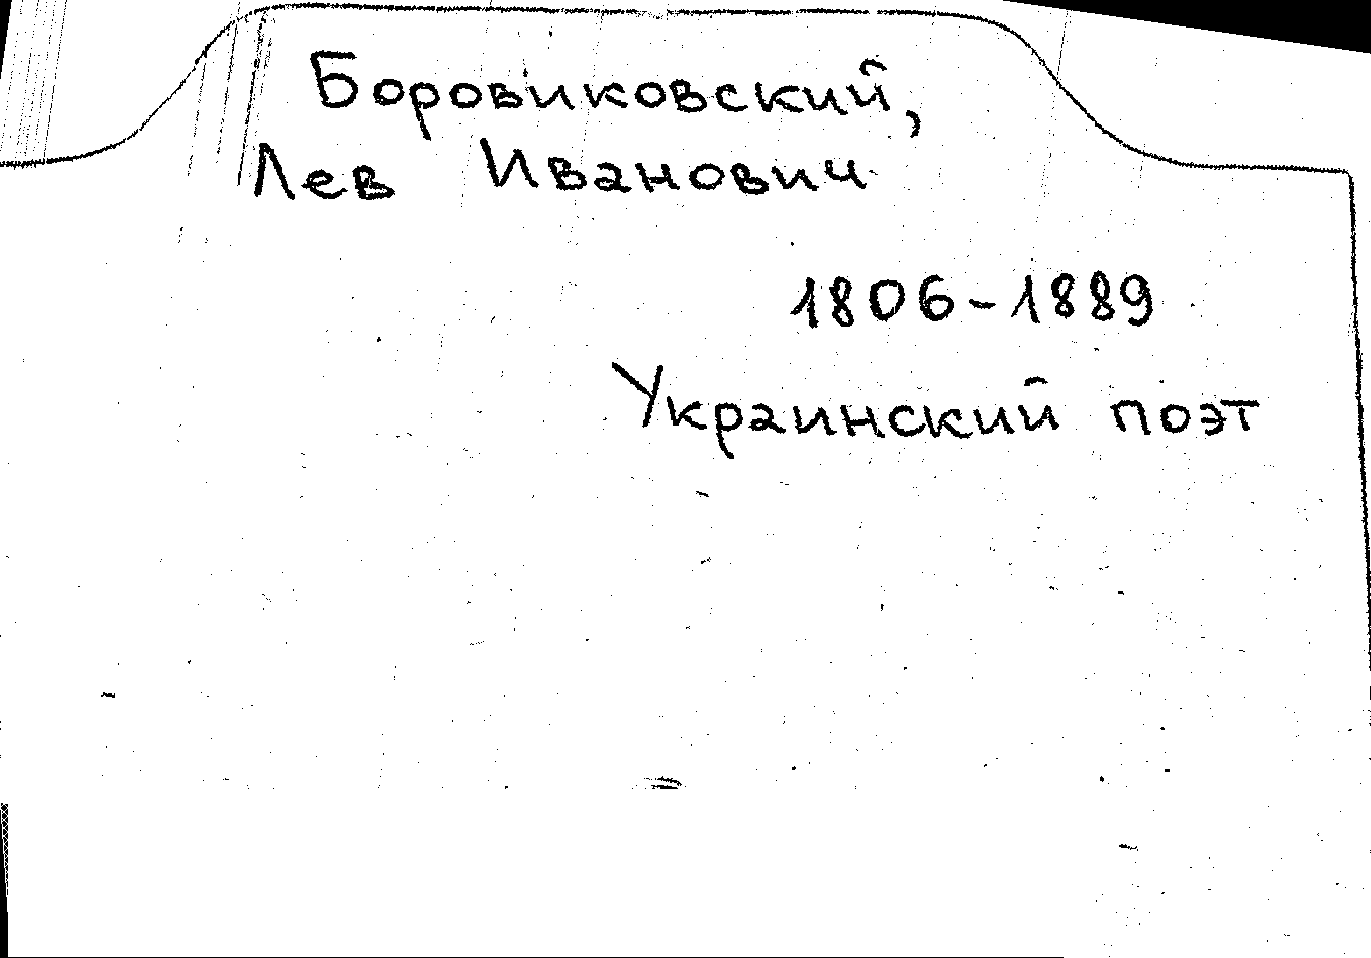 Боровиковский,
Лев Иванович
1806-1889
Украинский поэт